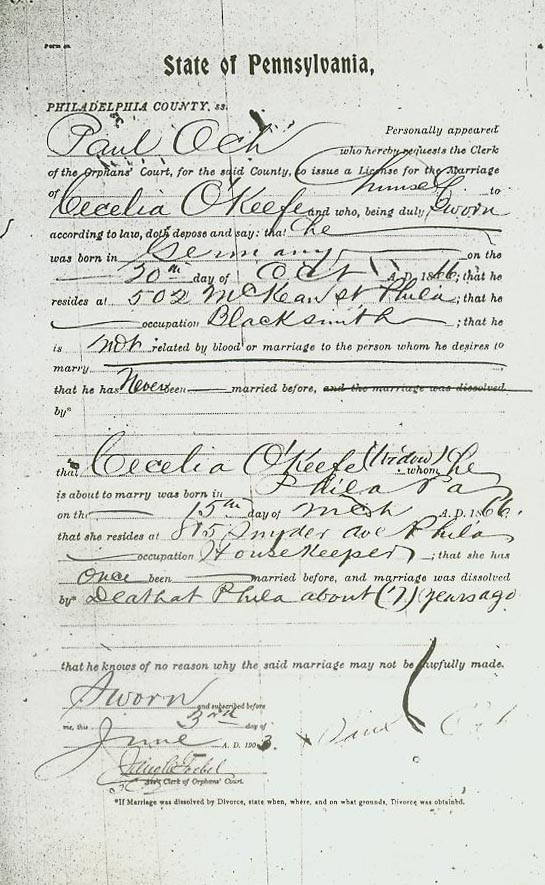 Form 40.
State of Pennsylvania,
PHILADELPHIA COUNTY, ss.
Personally appeared
Paul Och who hereby requests the Clerk
of the Orphans' Court, for the said County, to issue a License for the Marriage
of himself to
Cecelia O'Keefe and who, being duly Sworn
according to law, doth depose and say: that he
was born in Germany on the
20th day of Oct A. D. 1866; that he
resides at 502 McKean St Phila; that he
occupation Blacksmith; that he
is not related by blood or marriage to the person whom he desires to
marry
that he has Never been married before, and the marriage was dissolved
by*
that Cecelia O'Keefe (Widow) whom he
is about to marry was born in Phila Pa
on the 15th day of Mch A. D. 1866.
that she resides at 815 Snyder Ave Phila
occupation Housekeeper; that she has
Once been married before, and marriage was dissolved
by* Death at Phila about (7) years ago
that he knows of no reason why the said marriage may not be lawfully made.
Sworn and subscribed before
me, this 3rd day of
June A. D. 1903. Paul Och
Clerk of Orphans' Court.
*If Marriage was dissolved by Divorce, state when, where, and on what grounds, Divorce was obtained.